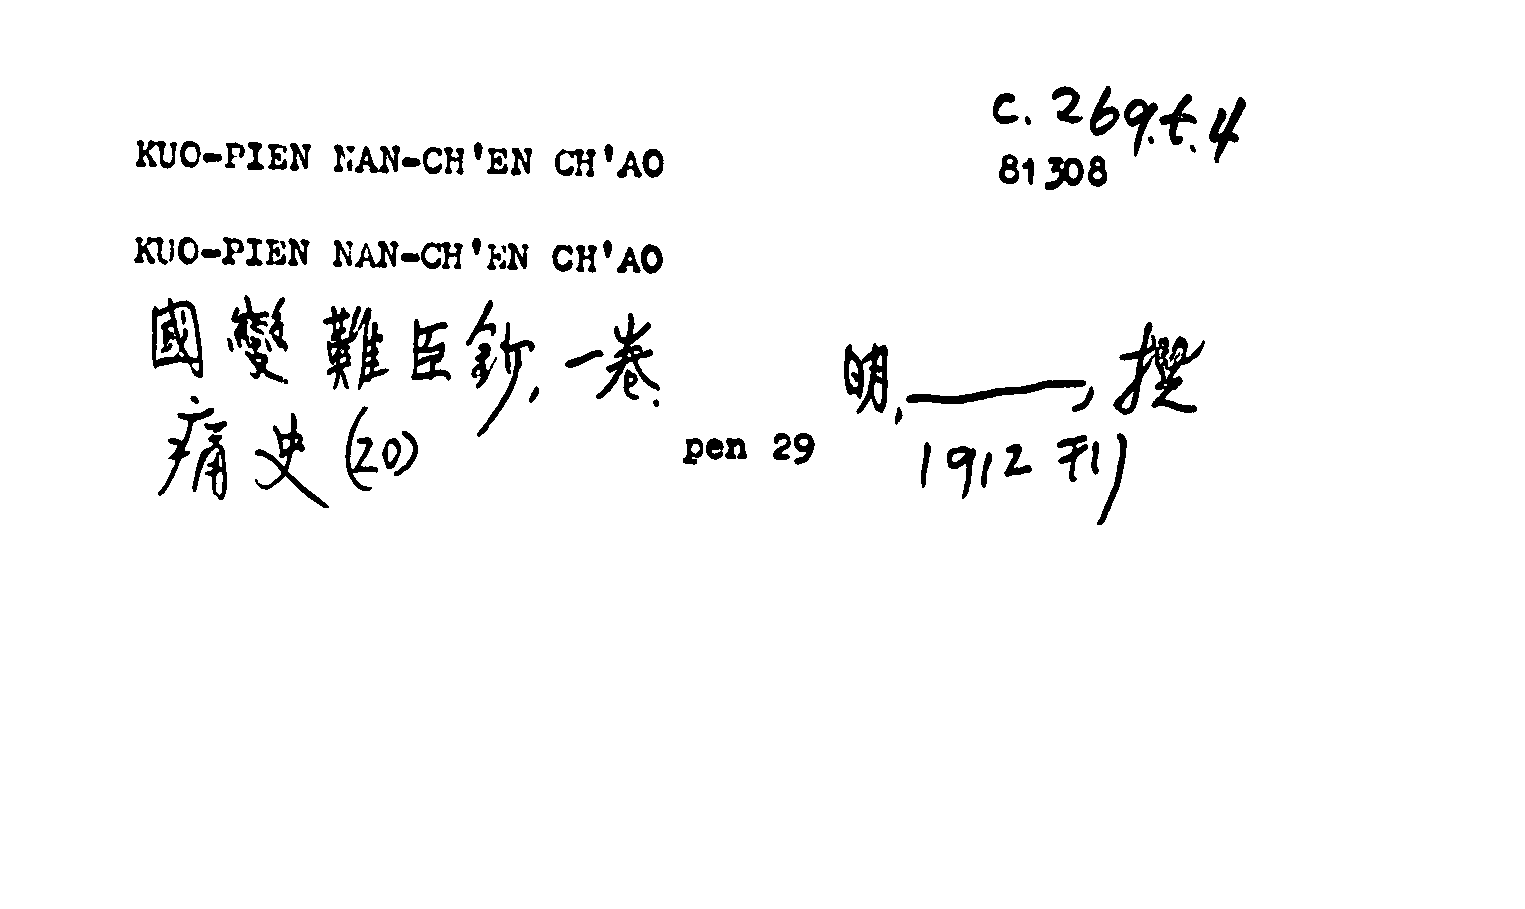 C. 269.t.4
81308
KUO-PIEN NAN-CH'EN CH'AO
KUO-PIEN NAN-CH'EN CH'AO
國變難臣鈔. 一卷. 明, ———, 撰
痛史 (20) pen 29 1912 刊